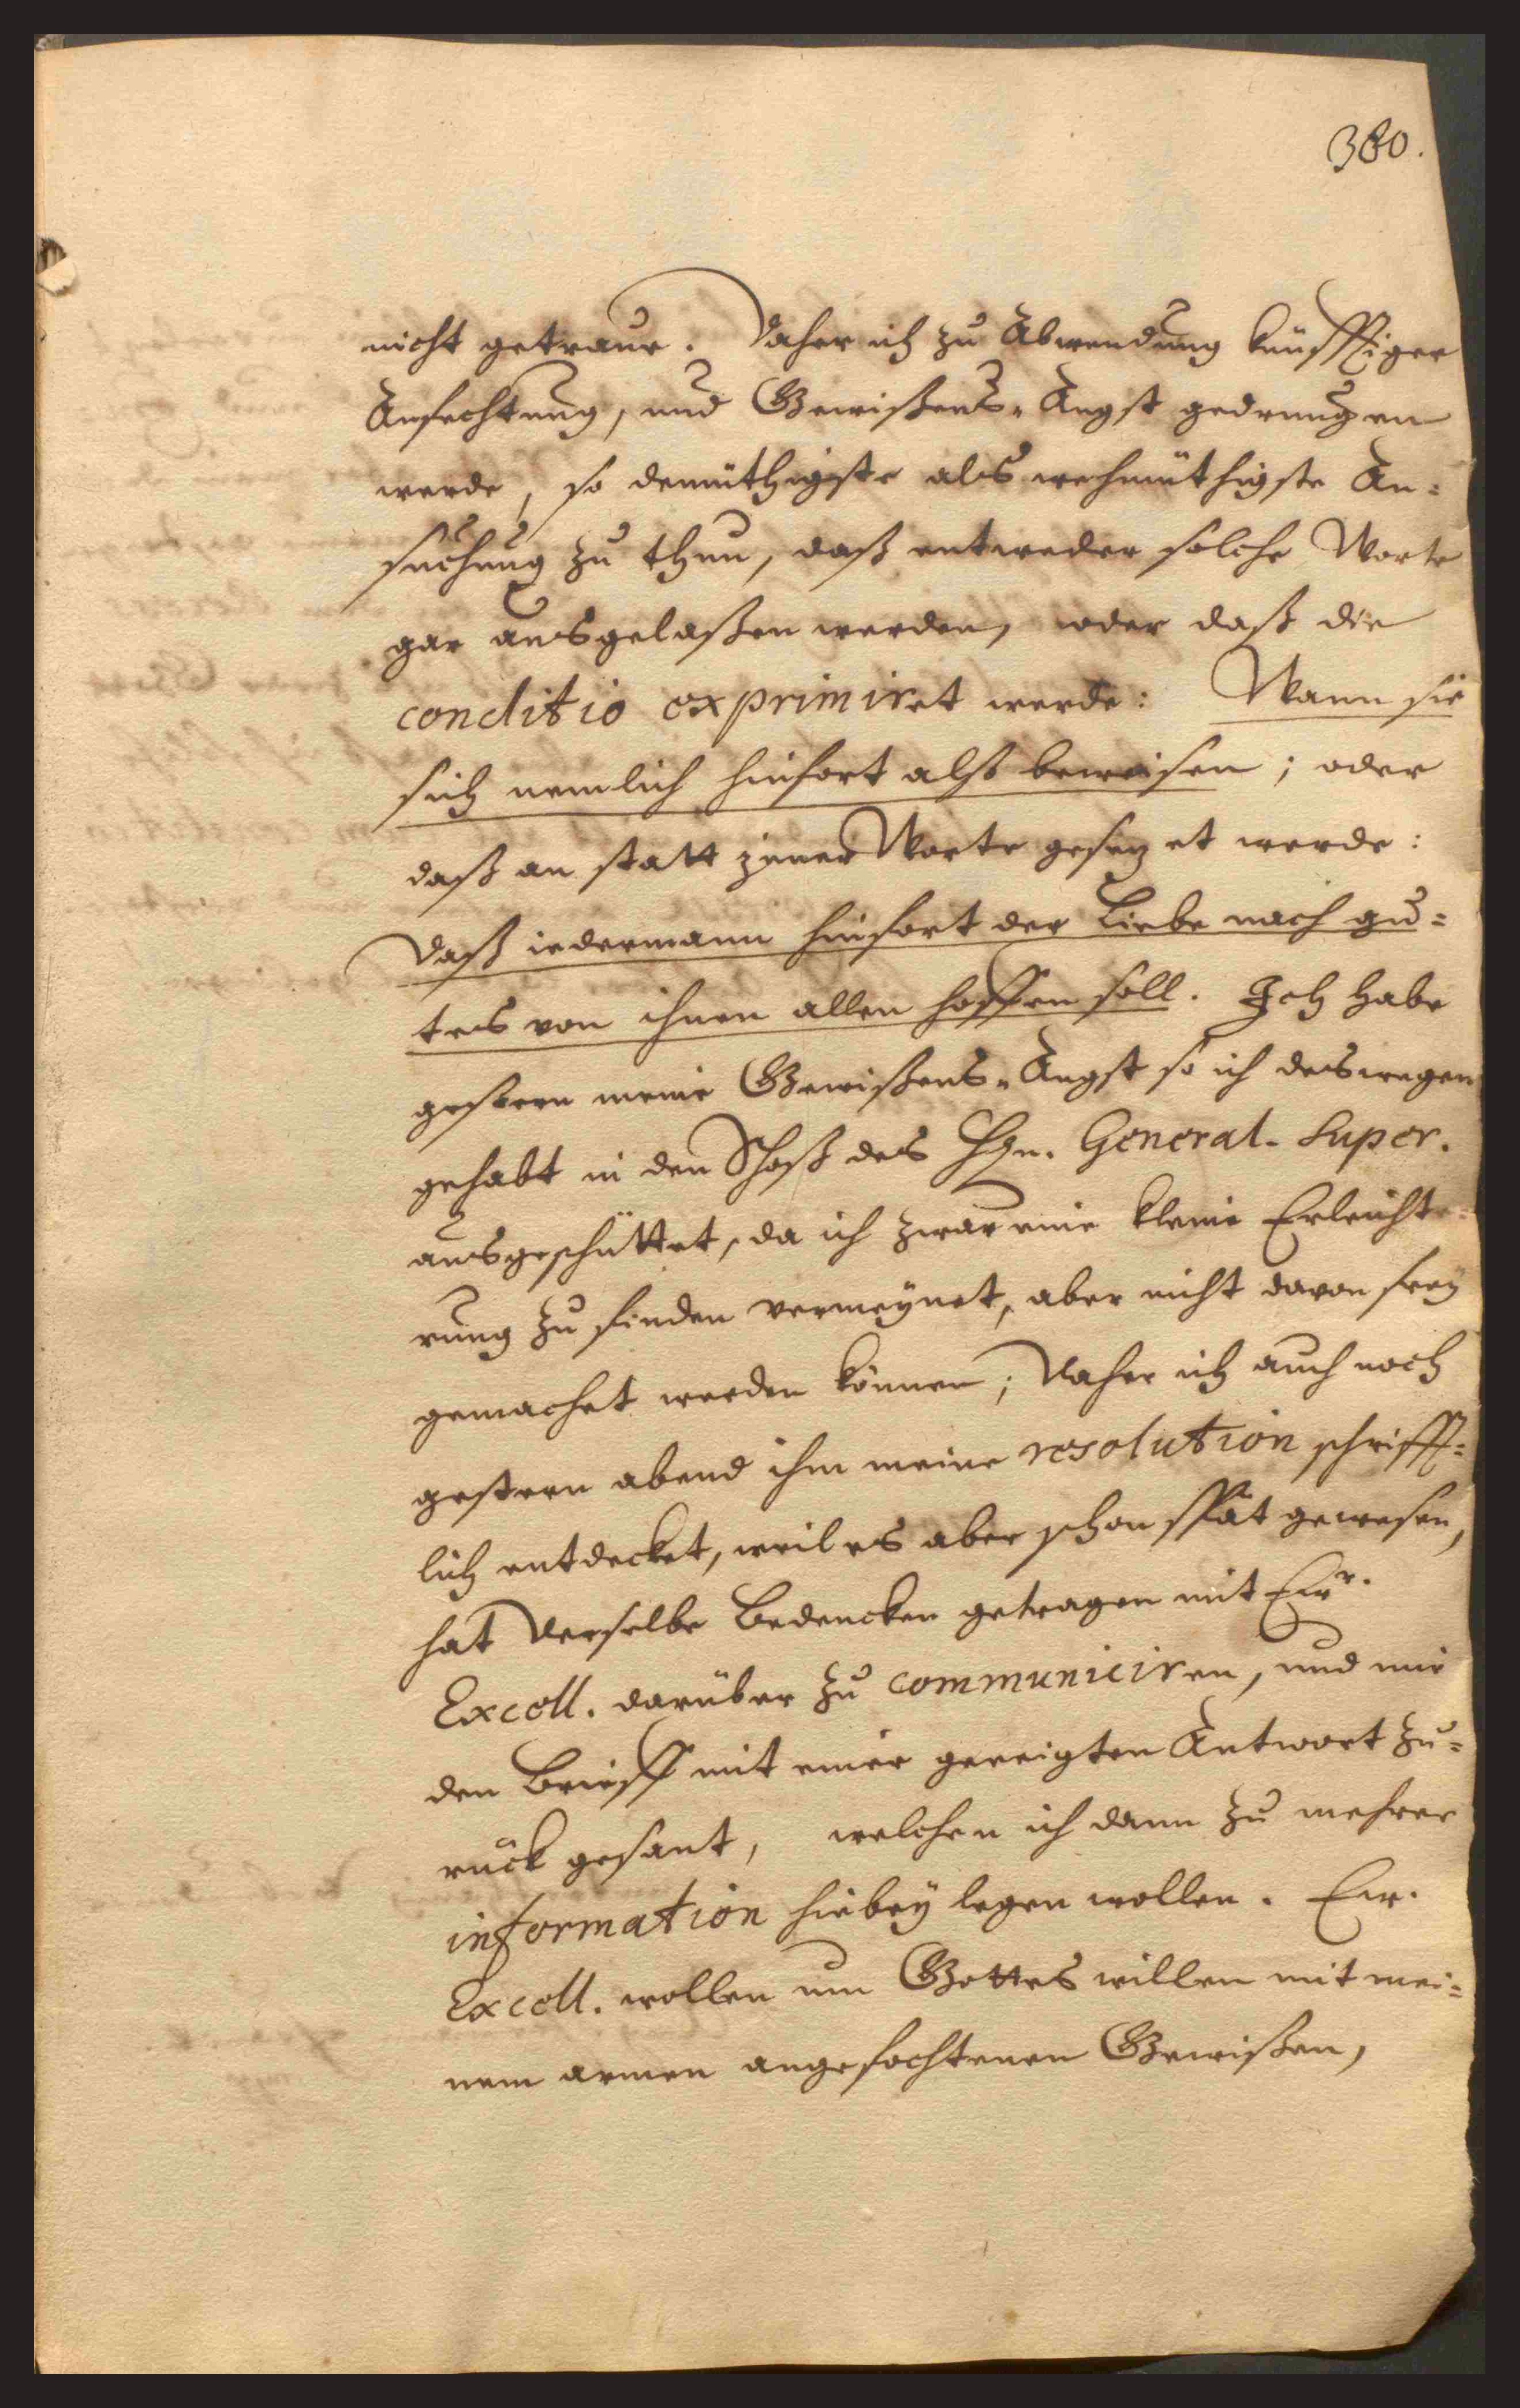 380.
nicht getraue. Daher ich zu Abwendung künfftiger
Anfechtung, und Gewißens-Angst gedrungen
werde, so demüthigste als wehmüthigste An=
suchung zu thun, daß entweder solche Worte
gar ausgelaßen werden, oder daß die
conditio exprimiret werde: Wann sie
sich nemlich hinfort alß beweisen; oder
daß an statt jener Worte gesezet werde:
Daß iedermann hinfort der Liebe nach gu=
tes von ihnen allen hoffen soll. Ich habe
gestern meine Gewißens-Angst so ich deswegen
gehabt in den Schoß des Hhn. General-Super.
ausgeschüttet, da ich zwar eine kleine Erleichte=
rung zu finden vermeynet, aber nicht davon frey
gemachet werden können; Daher ich auch noch
gestern abend ihm meine resolution schrifft=
lich entdecket, weil es aber schon spät gewesen,
hat derselbe Bedencken getragen mit Ewr.
Excell. darüber zu communiciren, und mir
den Brieff mit einer geneigten Antwort zu=
rück gesant, welchen ich dann zu mehrer
information hiebey legen wollen. Ew.
Excell. wollen um Gottes willen mit mei=
nem armen angefochtenen Gewißen,